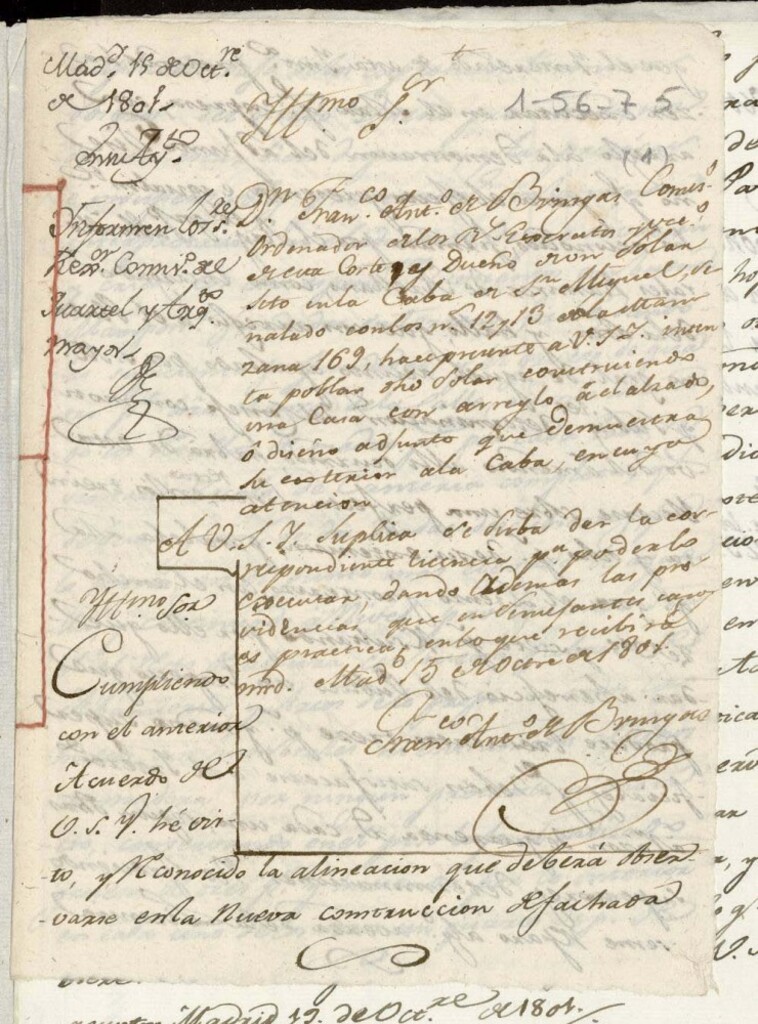 Madᵈ 19 de Octʳᵉ
de 1801.
Informen los Sʳᵉˢ
Regʳ Comisº de
Quartel y Arqᵗº
mayor
Yllmo Sʳ
1-56-7 5
(1)
Dⁿ Franᶜº Antº de Bringas Comisº
Ordenador de los Rˢ Exercitos y vecº
de esta Corte y Dueño de un Solar
sito en la Caba de Sⁿ Miguel, se-
ñalado con los nˢ 12 y 13 de la Man-
zana 169, hace presente a V.S.I. inten-
ta poblar dho Solar construiendo
una Casa con arreglo â el alzado,
ô diseño adjunto que demuestra
su exterior a la Caba, en cuya
atencion
A V.S.I. Suplica se sirba dar la cor-
respondiente licencia pª poderlo
executar, dando además las pro-
videncias que en semejantes casos
es practica, en lo que recibirá
mrd. Madᵈ 15 de Octre de 1801.
Franᶜº Antº de Bringas
Yllmo Sor
Cumpliendo
con el anterior
Acuerdo de
V.S.Y. hé vis-
to, y Reconocido la alineacion que deberá obser-
varse en la Nueva construccion de fachada
Madrid 19. de Octʳᵉ de 1801.